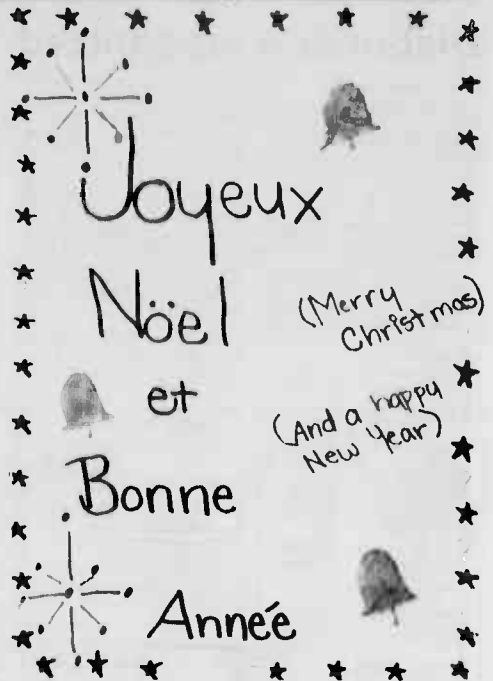 Joyeux
Nöel
(Merry
Christmas)
et
(And a happy
New Year)
Bonne
Année